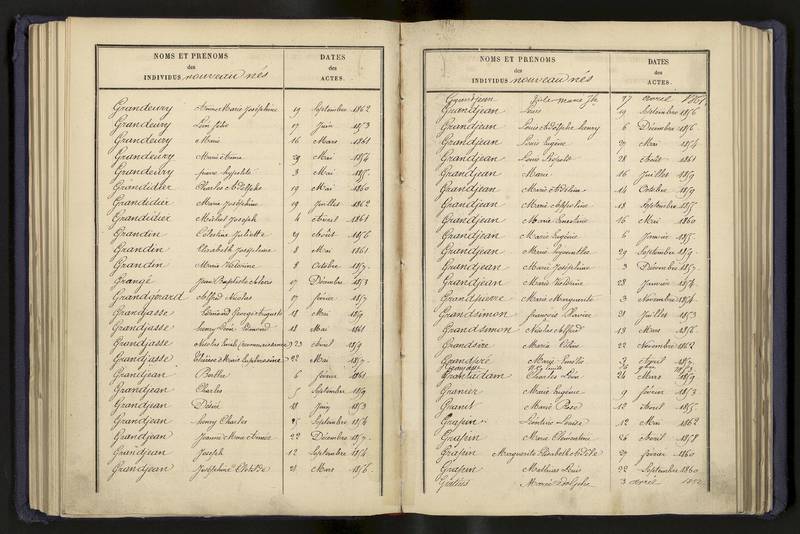 NOMS ET PRÉNOMS
des
INDIVIDUS nouveau nés
DATES
des
ACTES.
Grandeury Anne Marie Joséphine 19 Septembre 1862
Grandeury 17 Juin 1853
Grandeury Marie 16 Mars 1861
Grandeury Marie 29 Mai 1854
Grandeury pierre hypolite 3 Mai
Grandidier Charles Adolphe 19 Mai 1860
Grandidier Marie Joséphine 19 Juillet 1862
Grandidier Joseph 4 Avril 1861
Grandin Célestine Juliette 29 Août 1856
Grandin Elisabeth Joséphine 8 Mai 1861
Grandin Marie Victorine 8 Octobre
Grangé Jean Baptiste 17 Décembre 1853
Grandgérard Alfred Nicolas 17 février 1857
Grandjasse Fernand George Auguste 18 Mai 1859
Grandjasse Henry Edmond 18 Mai 1861
Grandjasse Nicolas Emile (reconnaissance) 23 Avril 1859
Grandjasse Marie Euphrosine 22 Mai
Grandjean Berthe 6 février 1861
Grandjean Charles 5 Septembre 1859
Grandjean Désiré 18 Juin 1853
Grandjean henry Charles 25 Septembre 1854
Grandjean Jeanne Marie Aimée 22 Décembre
Grandjean Joseph 12 Septembre 1854
Grandjean Joséphine Clotilde 21 Mars 1856
NOMS ET PRÉNOMS
des
INDIVIDUS nouveau nés
DATES
des
ACTES.
Grandjean 27 avril 1861
Grandjean Louis 19 Septembre 1856
Grandjean Louis Adolphe henry 6 Décembre 1856
Grandjean Louis Eugène 29 Mai 1854
Grandjean Louis 28 Août 1861
Grandjean Marie 16 Juillet 1859
Grandjean Marie Adeline 14 Octobre 1859
Grandjean Marie 18 Septembre
Grandjean Marie Ernestine 16 Mai 1860
Grandjean Marie Eugénie 6 Janvier
Grandjean Marie 29 Septembre
Grandjean Marie Joséphine 3 Décembre
Grandjean Marie Victorine 28 Janvier 1854
Grandpierre Marie Marguerite 3 Novembre 1854
Grandsimon françois Xavier 21 Juillet 1853
Grandsimon Nicolas Alfred 13 Mars 1856
Grandsire Marie 22 Novembre 1862
Grandpré Marie Avril
Charles 24 Mars 1859
Granier Marie Eugénie 9 février 1853
Granet Marie Rose 12 Avril
Grapin Léontine Louise 12 Mai 1862
Grapin Marie Clémentine 26 Avril 1858
Grapin Marguerite Elisabeth Adèle 29 février 1860
Grapin Mathias Louis 22 Septembre 1860
Marie 3 avril